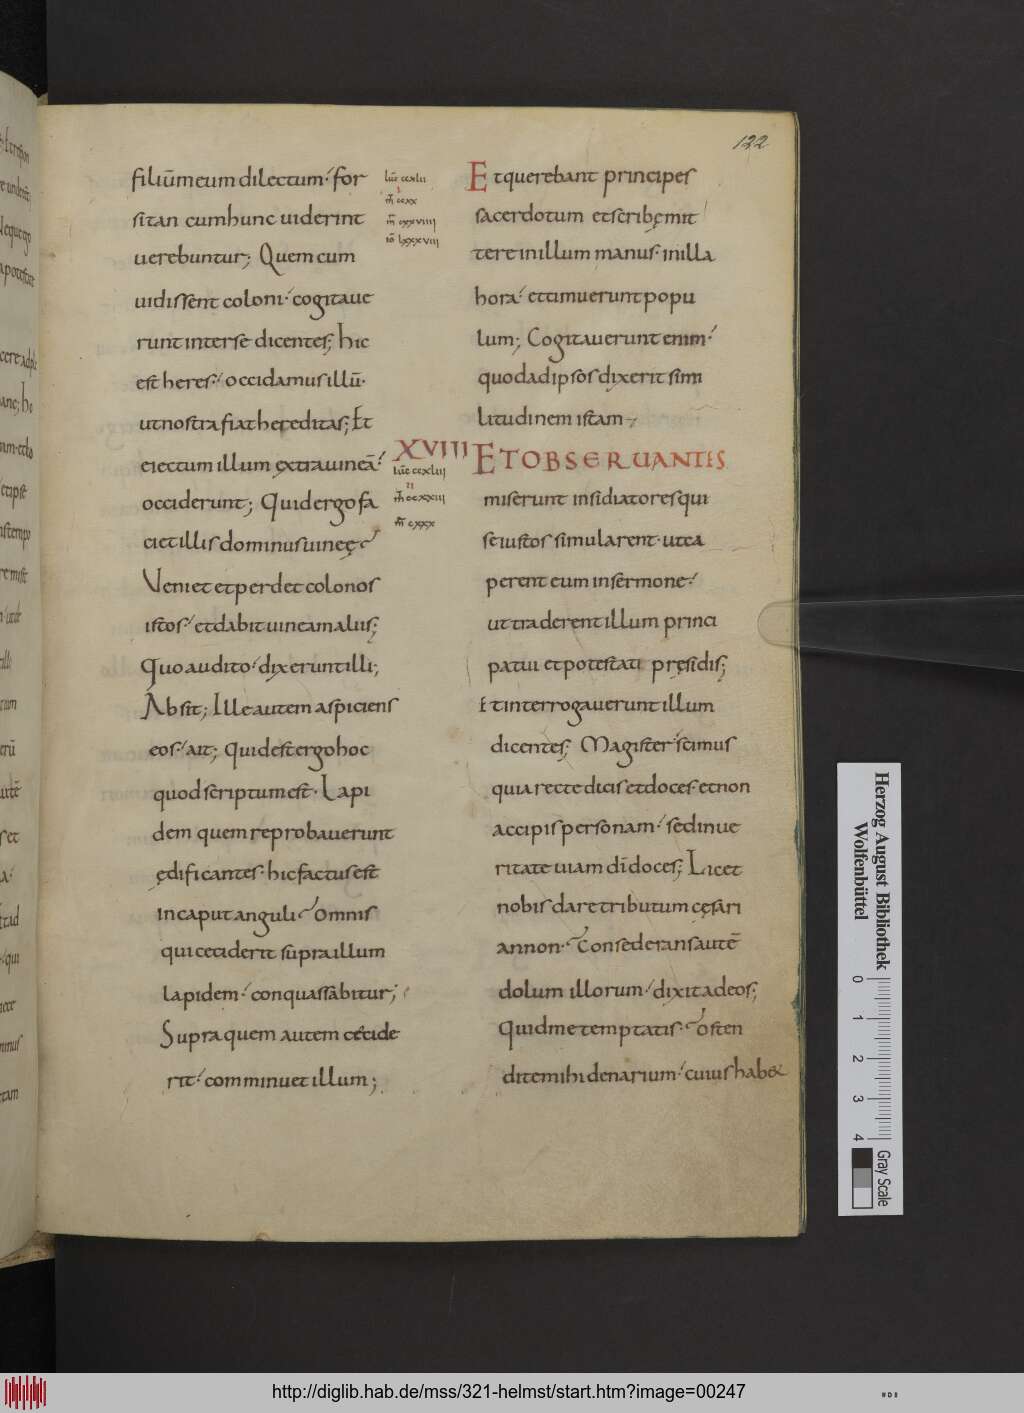 122
filiū meum dilectum· for
sitan cum hunc uiderint
uerebuntur; Quem cum
uidissent coloni· cogitaue
runt inter se dicentes; hic
est heres· occidamus illū·
ut nostra fiat hereditas; Et
eiectum illum extra uineā·
occiderunt; Quid ergo fa
ciet illis dominus uineę
Veniet et perdet colonos
istos· et dabit uineam aliis;
Quo audito· dixerunt illi;
Absit; Ille autem aspiciens
eos· ait; Quid est ergo hoc
quod scriptum est· Lapi
dem quem reprobauerunt
ędificantes· hic factus est
in caput anguli Omnis
qui ceciderit supra illum
lapidem· conquassabitur;
Supra quem autem cecide
rit· comminuet illum;
lūc ccxlii
m̄ ccxx
m̄ cxxviiii
iō lxxxviii
Et querebant principes
sacerdotum et scribę mit
tere in illum manus· in illa
hora· et timuerunt popu
lum; Cogitauerunt enim·
quod ad ipsos dixerit simi
litudinem istam
XVIIII ET OBSERUANTES
lūc ccxliii
m̄ ccxxiii
m̄ cxxx
miserunt insidiatores qui
se iustos simularent· ut ca
perent eum in sermone·
ut traderent illum princi
patui et potestati pręsidis;
Et interrogauerunt illum
dicentes; Magister scimus
quia recte dicis et doces· et non
accipis personam· sed in ue
ritate uiam dī doces; Licet
nobis dare tributum cęsari
an non· Considerans autē
dolum illorum· dixit ad eos;
Quid me temptatis· osten
dite mihi denarium· cuius hab&
Herzog August Bibliothek
Wolfenbüttel
0 1 2 3 4
Gray Scale
http://diglib.hab.de/mss/321-helmst/start.htm?image=00247